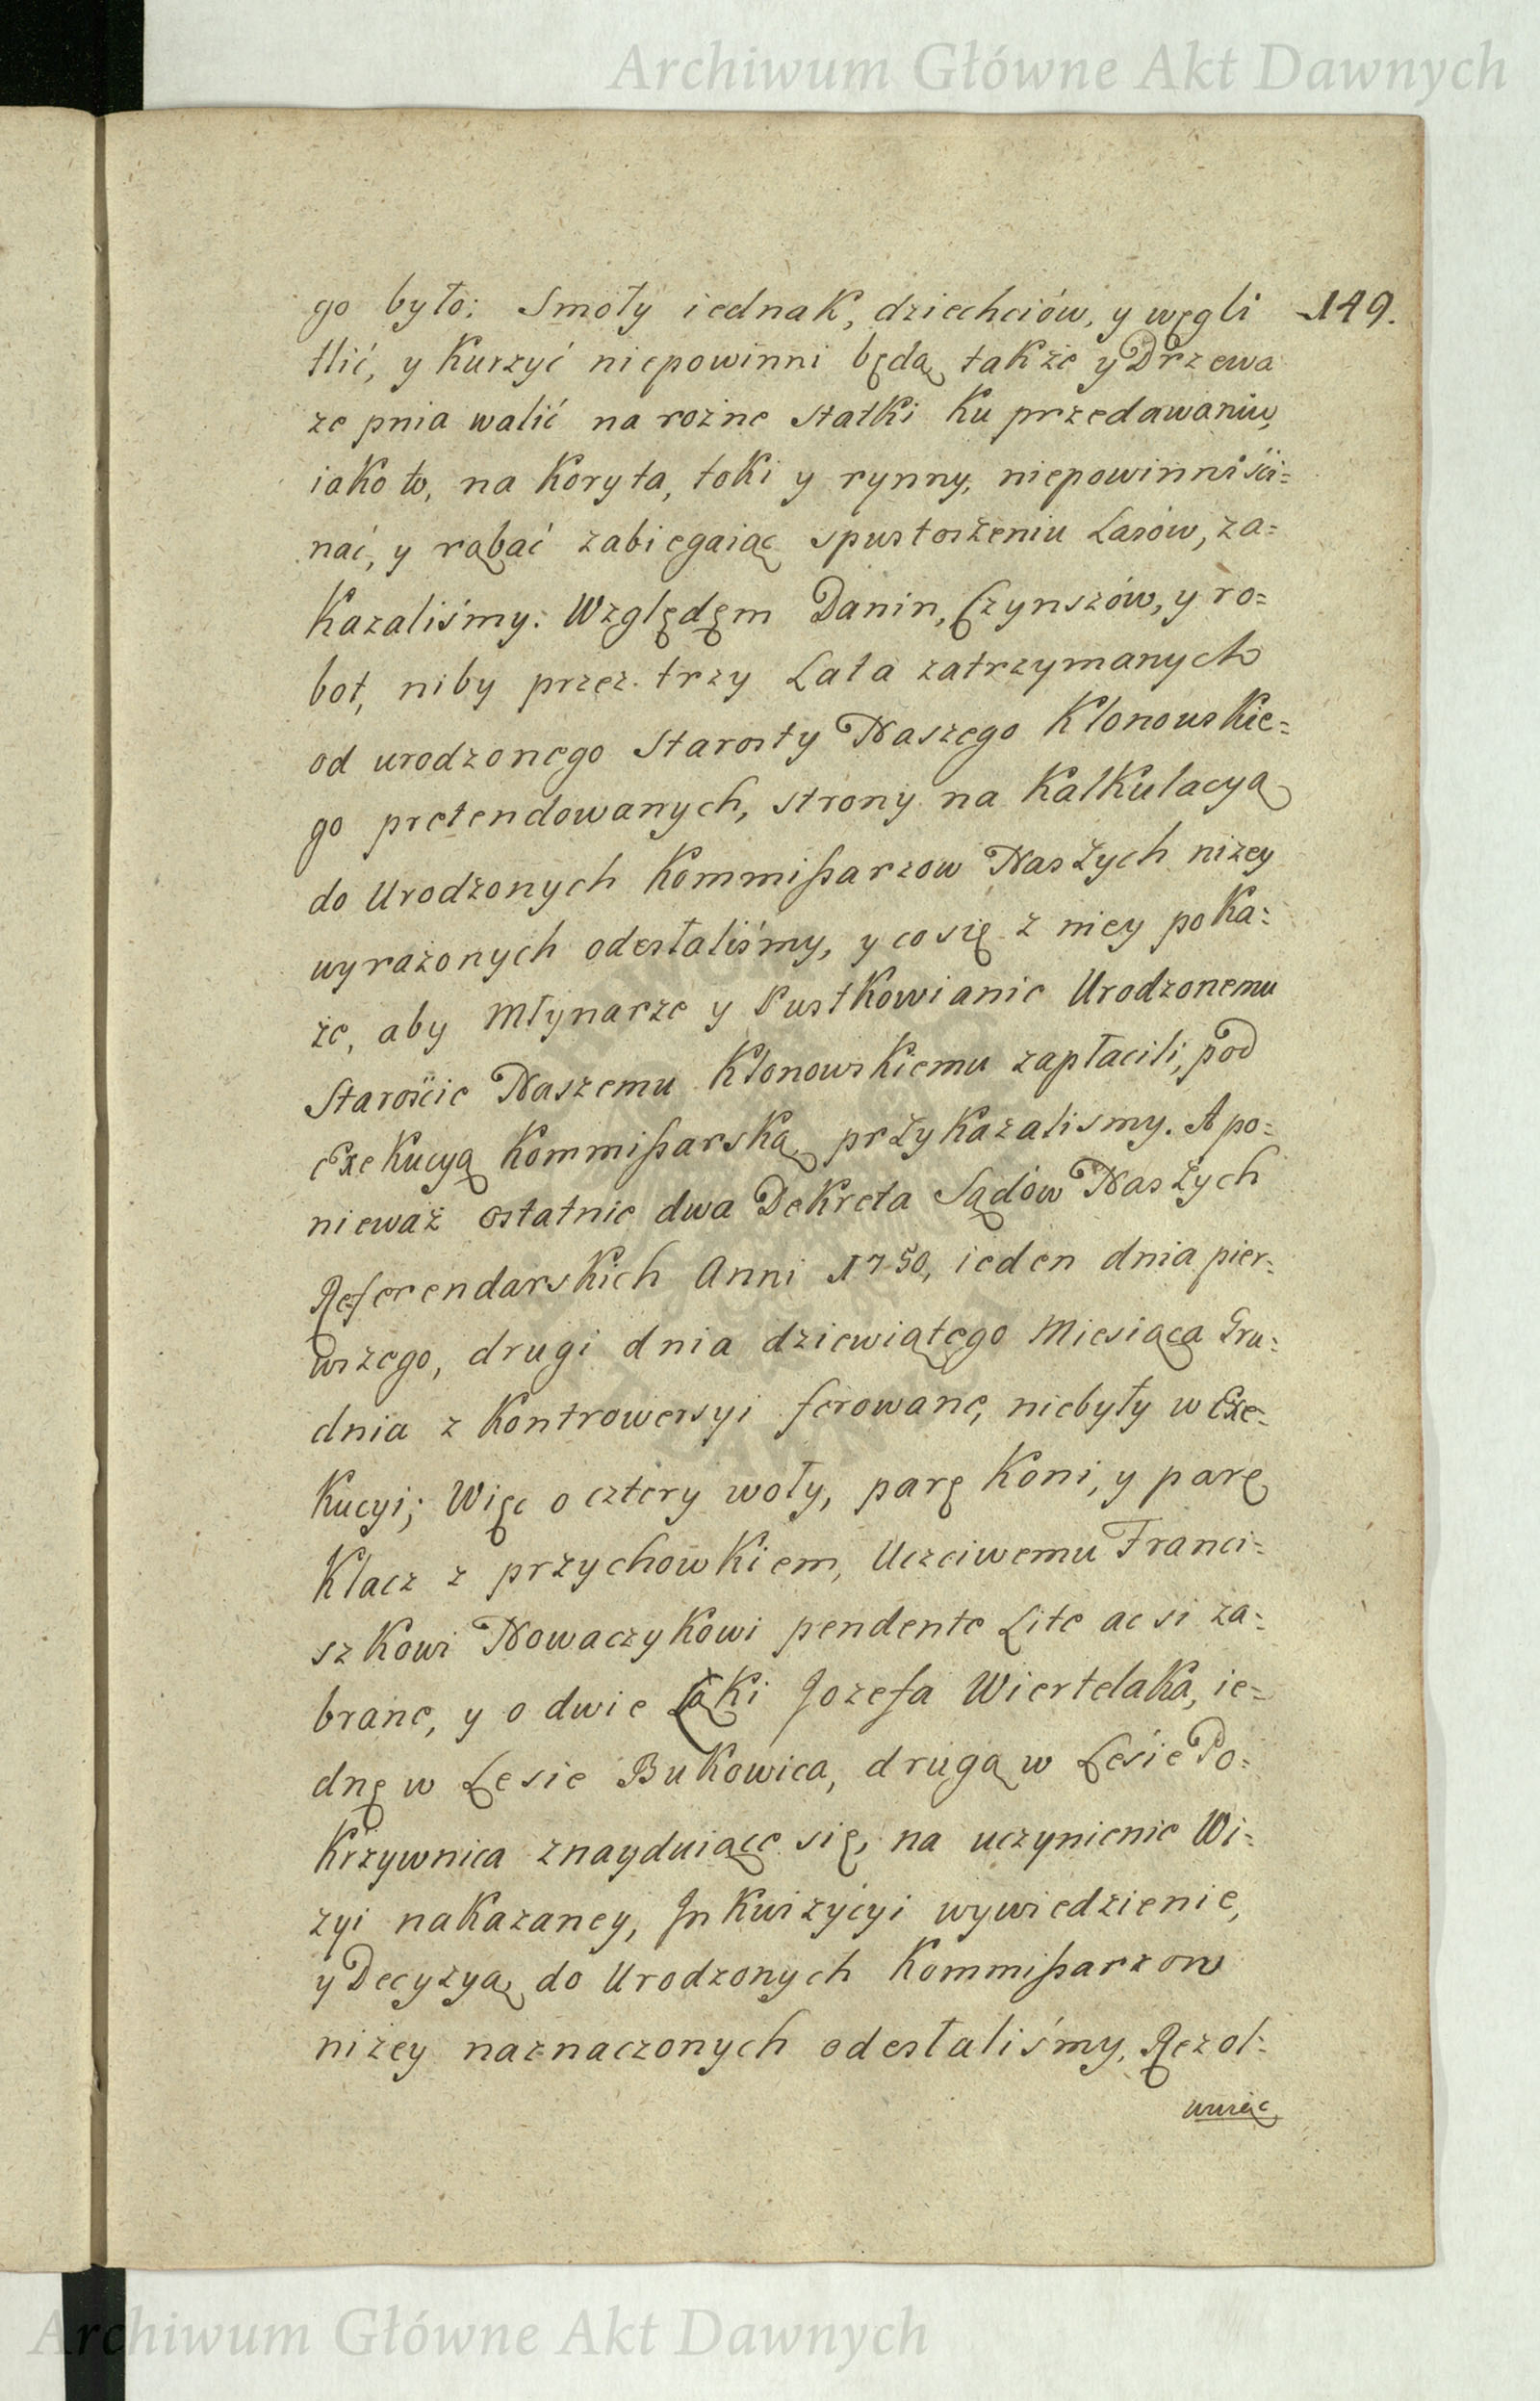 Archiwum Główne Akt Dawnych
go było: Smoły iednak, dziechciów, y węgli 149.
tlić, y Kurzyć niepowinni będą, także y Drzewa
ze pnia walić na rożne statki Ku przedawaniu,
iako to, na Koryta, toki y rynny, niepowinni ści=
nać, y rąbać zabiegaiąc spustoszeniu Lasów, za=
Kazaliśmy: Względęm Danin, Czynszów, y ro=
bot, niby przez trzy Lata zatrzymanych
od urodzonego Starosty Naszego Klonowskie=
go pretendowanych, strony na Kalkulacyą
do Urodzonych Kommißarzow Naszych niżey
wyrażonych odesłaliśmy, y co się z niey poka=
że, aby Młynarze y Pustkowianie Urodzonemu
Starościе Naszemu Klonowskiemu zapłacili, pod
exekucyą Kommißarską, przykazalismy. A po=
nieważ ostatnie dwa Dekreta Sądów Naszych
Referendarskich Anni 1750, ieden dnia pier=
wszego, drugi dnia dziewiątęgo Miesiąca Gru=
dnia z Kontrowersyi ferowane, niebyły w Exe=
Kucyi; Więc o cztery woły, parę Koni, y parę
Klacz z przychowkiem, Uczciwemu Franci=
szkowi Nowaczykowi pendente Lite ac si za=
brane, y o dwie Łąki Jozefa Wiertelaka, ie=
dnę w Lesie Bukowica, drugą w Lesie Po=
Krzywnica znayduiące się, na uczynienie Wi=
zyi nakazaney, Inkwizycyi wywiedzienie,
y Decyzyą, do Urodzonych Kommißarzow
niżey naznaczonych odesłaliśmy. Rezol=
wuiąc
Archiwum Główne Akt Dawnych